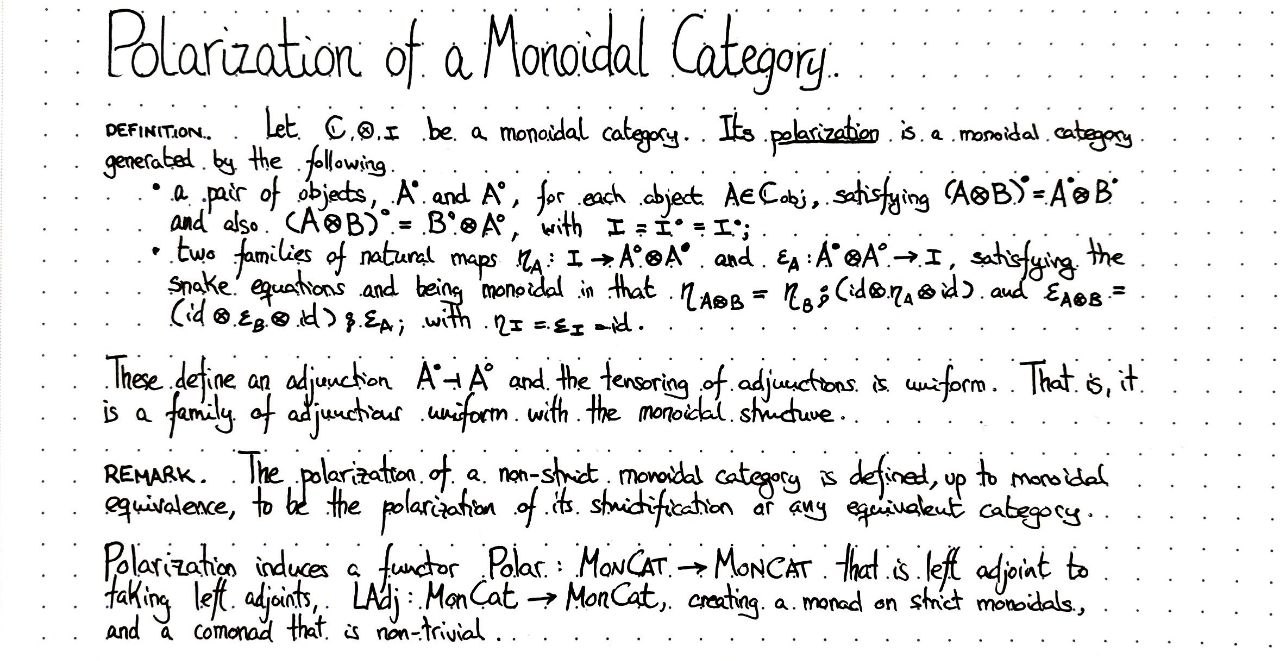 Polarization of a Monoidal Category.
DEFINITION. Let ℂ,⊗,I be a monoidal category. Its polarization is a monoidal category
generated by the following.
• a pair of objects, A• and A°, for each object A∈ℂobj, satisfying (A⊗B)• = A•⊗B•
and also (A⊗B)° = B°⊗A°, with I = I° = I•;
• two families of natural maps η_A : I → A°⊗A• and ε_A : A•⊗A° → I, satisfying the
snake equations and being monoidal in that η_{A⊗B} = η_B ⨾ (id⊗η_A⊗id) and ε_{A⊗B} =
(id⊗ε_B⊗id) ⨾ ε_A; with η_I = ε_I = id.
These define an adjunction A• ⊣ A° and the tensoring of adjunctions is uniform. That is, it
is a family of adjunctions uniform with the monoidal structure.
REMARK. The polarization of a non-strict monoidal category is defined, up to monoidal
equivalence, to be the polarization of its strictification or any equivalent category.
Polarization induces a functor Polar : MONCAT → MONCAT that is left adjoint to
taking left adjoints, LAdj : MonCat → MonCat, creating a monad on strict monoidals,
and a comonad that is non-trivial.